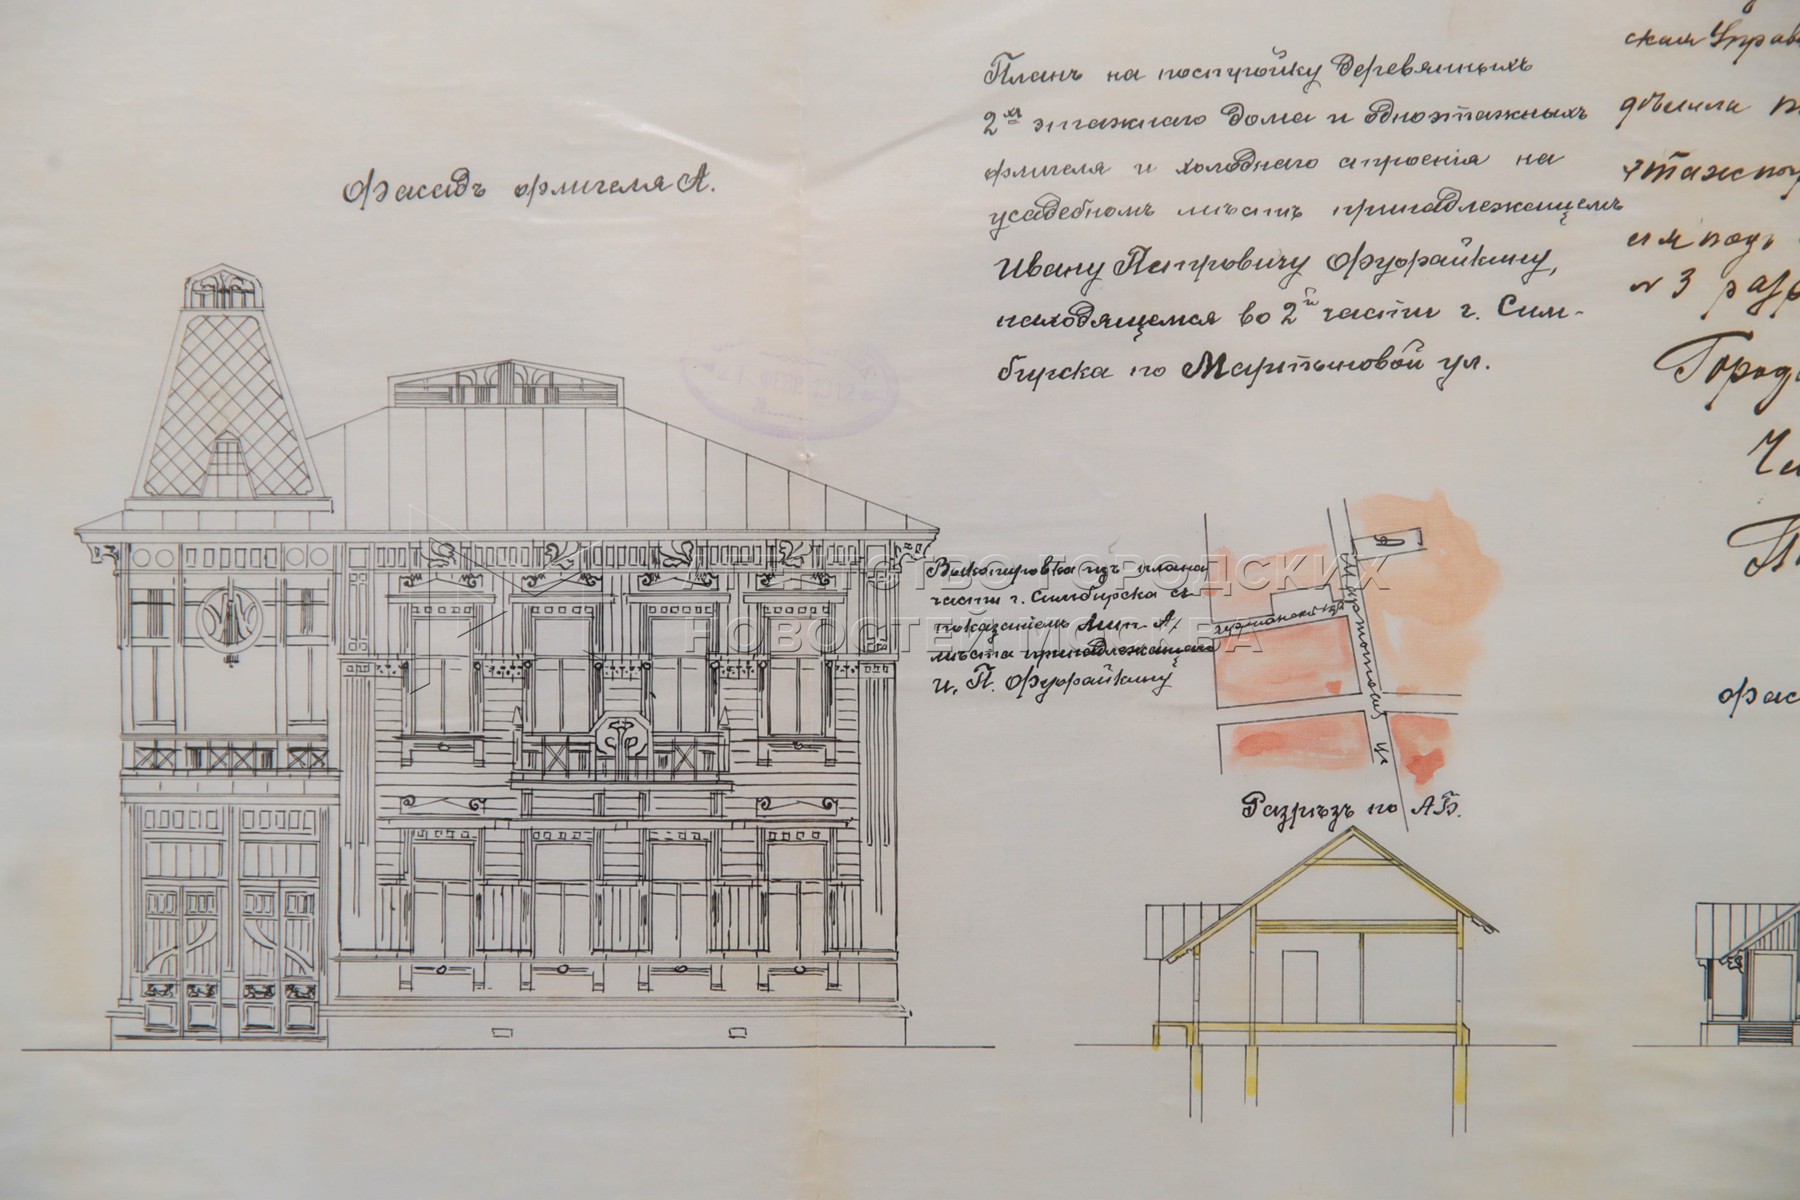 Фасадъ флигеля А.
Планъ на постройку деревянныхъ
2ˣ этажнаго дома и одноэтажныхъ
флигеля и холоднаго строенія на
усадебномъ мѣстѣ принадлежащемъ
Ивану Петровичу Фуфайкину,
находящемся во 2й части г. Сим-
бирска по Мартыновой ул.
Выкопировка изъ плана
части г. Симбирска съ
показаніемъ Лит. А,
мѣста принадлежащаго
И. П. Фуфайкину
Мартынова
ул
Разрѣзъ по АБ.
ская Управ
№ 3 разр
Город
фас
АГЕНТСТВО ГОРОДСКИХ
НОВОСТЕЙ МОСКВА